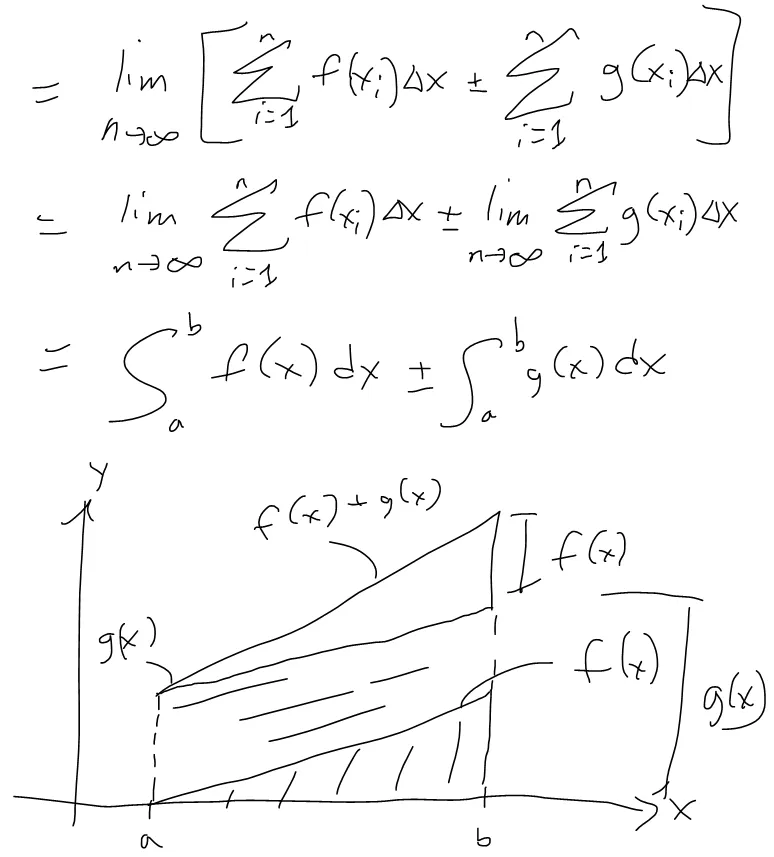 = lim n→∞ [ n ∑ i=1 f(xᵢ)Δx ± n ∑ i=1 g(xᵢ)Δx ]
= lim n→∞ n ∑ i=1 f(xᵢ)Δx ± lim n→∞ n ∑ i=1 g(xᵢ)Δx
= ∫ₐᵇ f(x) dx ± ∫ₐᵇ g(x) dx
y
f(x) + g(x)
f(x)
g(x)
f(x)
g(x)
x
a b